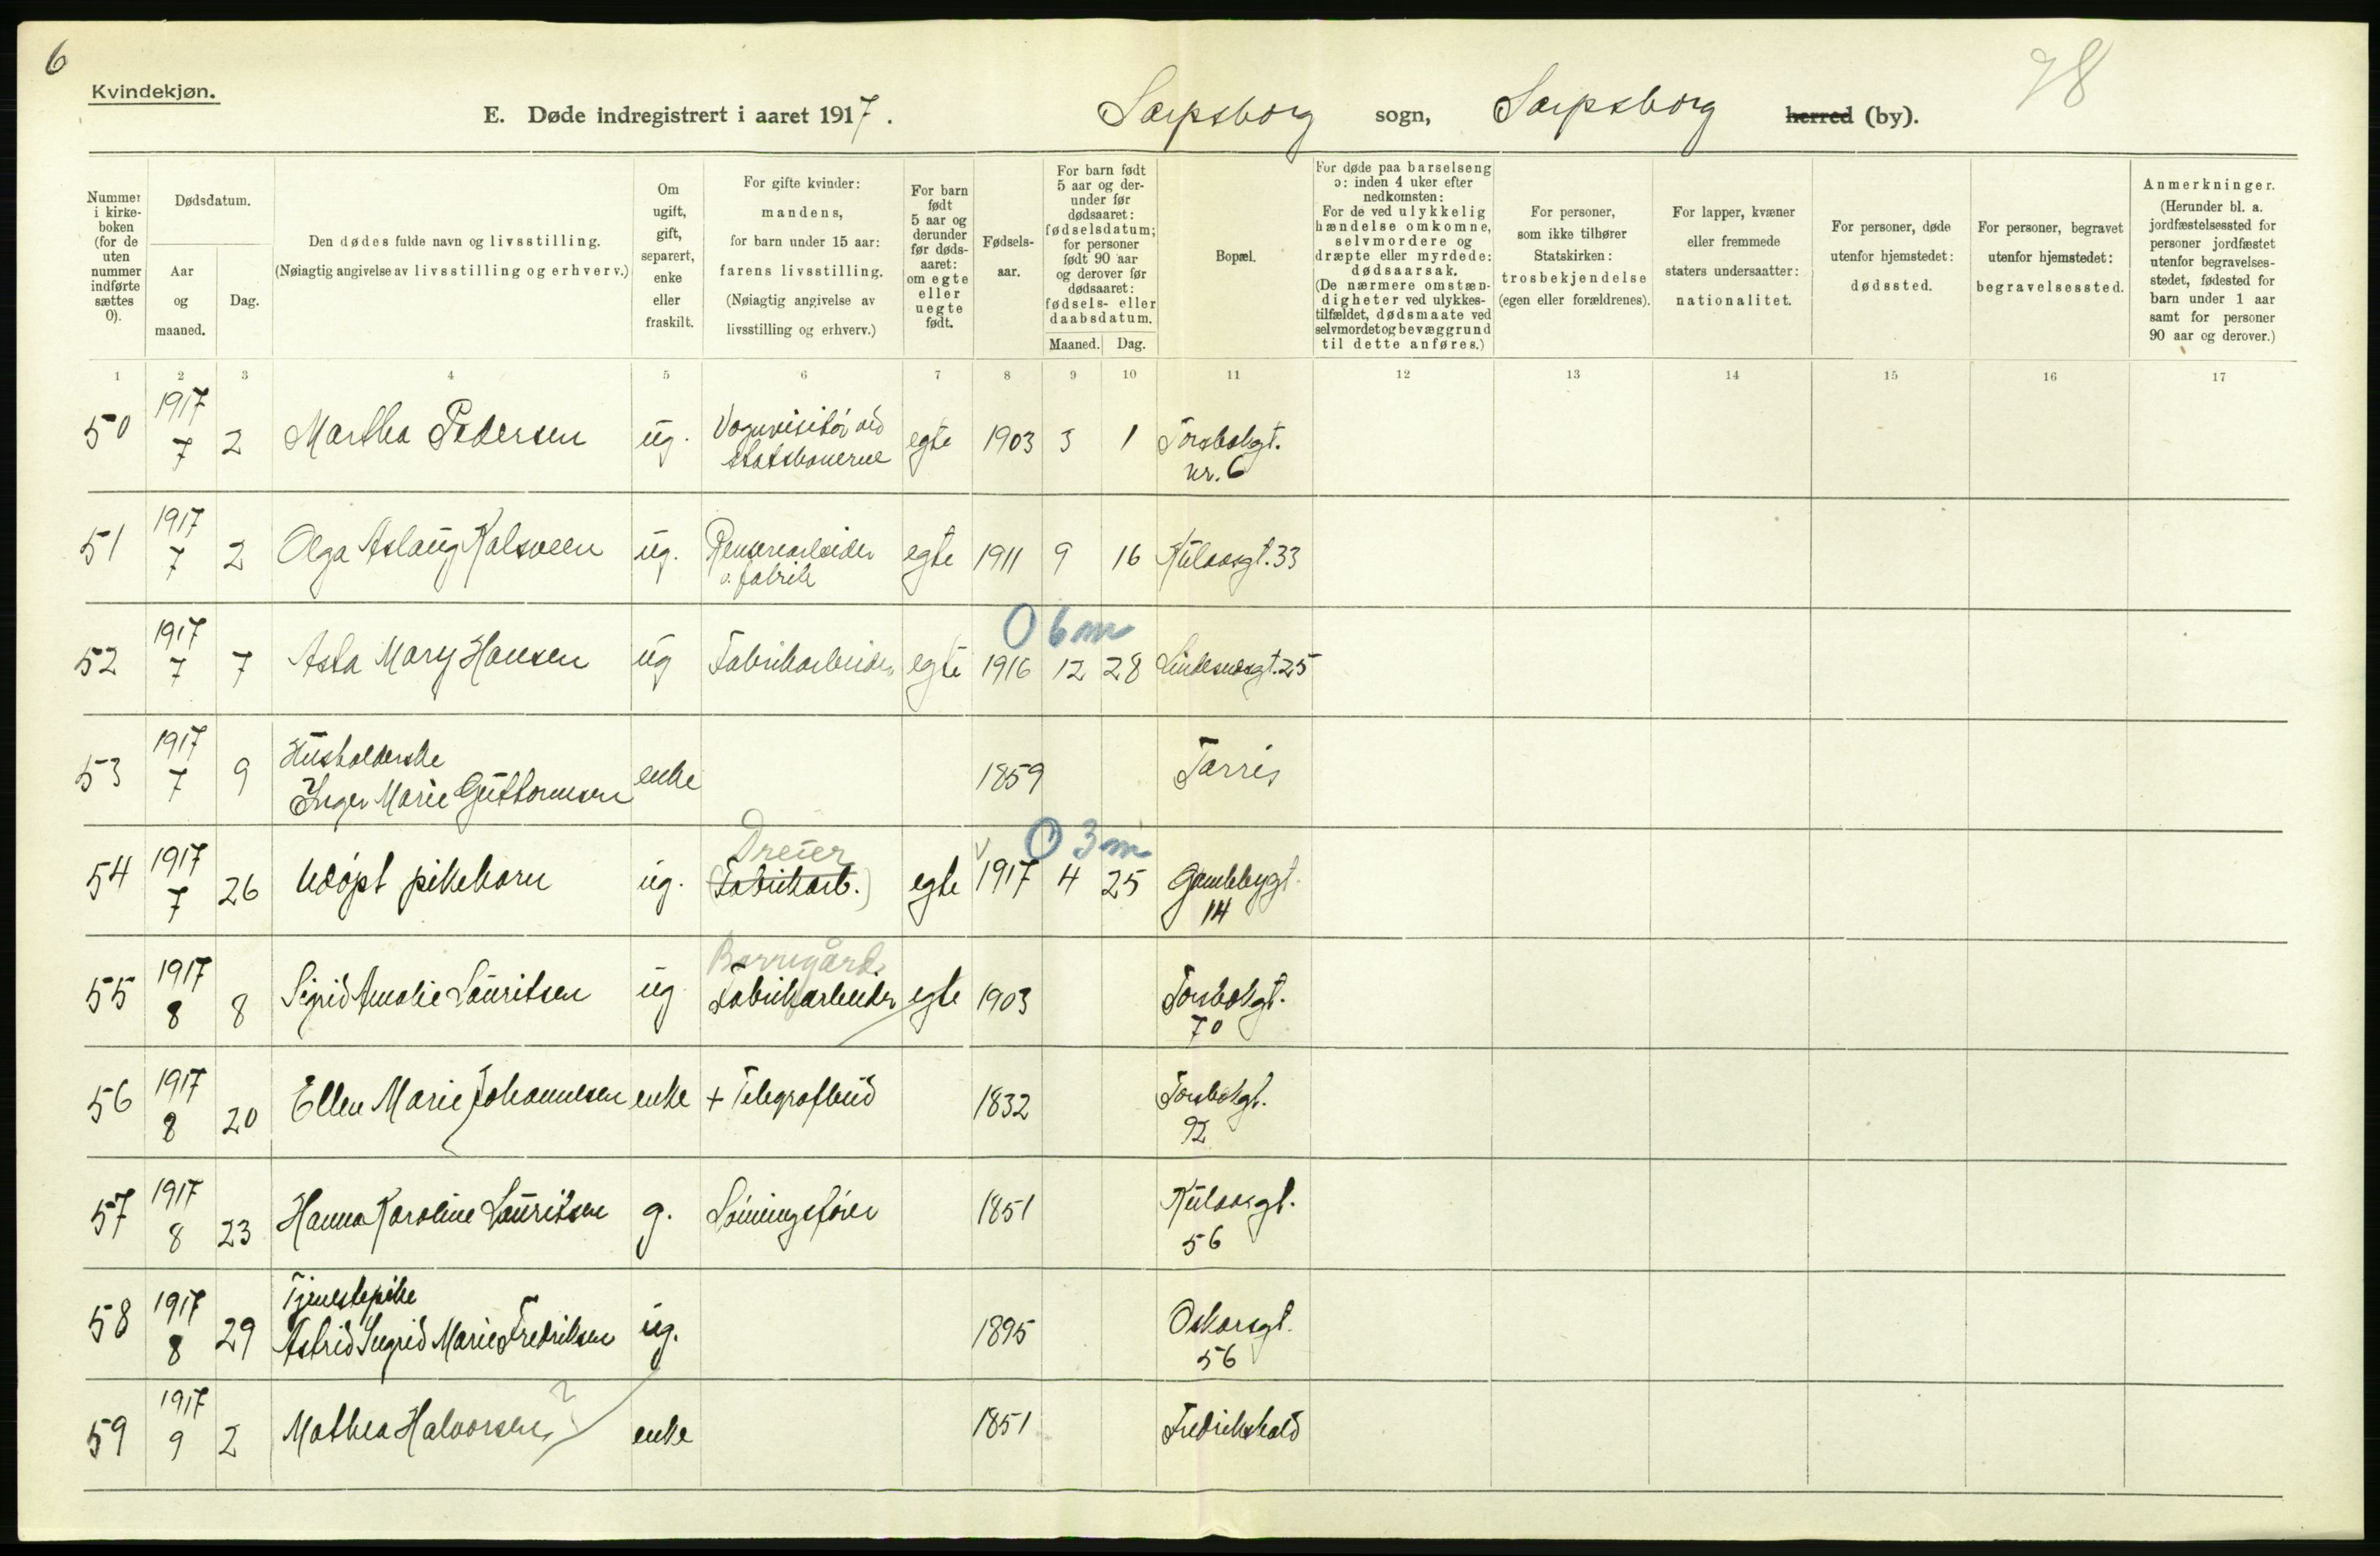 6
Kvindekjøn.
E. Døde indregistrert i aaret 1917.
Sarpsborg sogn, Sarpsborg herred (by).
78
Nummer i kirkeboken (for de uten nummer indførte sættes 0).
Dødsdatum.
Aar og maaned.
Dag.
Den dødes fulde navn og livsstilling.
(Nøiagtig angivelse av livsstilling og erhverv.)
Om ugift, gift, separert, enke eller fraskilt.
For gifte kvinder: mandens, for barn under 15 aar: farens livsstilling.
(Nøiagtig angivelse av livsstilling og erhverv.)
For barn født 5 aar og derunder før dødsaaret: om egte eller uegte født.
Fødselsaar.
For barn født 5 aar og derunder før dødsaaret: fødselsdatum; for personer født 90 aar og derover før dødsaaret: fødsels- eller daabsdatum.
Maaned. Dag.
Bopæl.
For døde paa barselseng ɔ: inden 4 uker efter nedkomsten:
For de ved ulykkelig hændelse omkomne, selvmordere og dræpte eller myrdede: dødsaarsak.
(De nærmere omstændigheter ved ulykkestilfældet, dødsmaate ved selvmordet og bevæggrund til dette anføres.)
For personer, som ikke tilhører Statskirken: trosbekjendelse (egen eller forældrenes).
For lapper, kvæner eller fremmede staters undersaatter: nationalitet.
For personer, døde utenfor hjemstedet: dødssted.
For personer, begravet utenfor hjemstedet: begravelsessted.
Anmerkninger.
(Herunder bl. a. jordfæstelsessted for personer jordfæstet utenfor begravelsesstedet, fødested for barn under 1 aar samt for personer 90 aar og derover.)
1 2 3 4 5 6 7 8 9 10 11 12 13 14 15 16 17
50 1917 7 2 Martha Pedersen ug. Vognvisitør ved statsbanerne egte 1903 3 1 Torsbekgt. nr. 6
51 1917 7 2 Olga Aslaug Kalsveen ug. Renseriarbeider v. fabrik egte 1911 9 16 Kulaasgt. 33
0 6 m
52 1917 7 7 Asta Mary Hansen ug Fabrikarbeider egte 1916 12 28 Lindesnæsgt. 25
53 1917 7 9 Husholderske Inger Marie Guttormsen enke 1859 Tarris
Dreier
0 3 m
54 1917 7 26 Udøpt pikebarn ug. (Fabrikarb.) egte 1917 4 25 Gamlebygt. 14
Borregård
55 1917 8 8 Sigrid Amalie Lauritsen ug Fabrikarbeider egte 1903 Torsbekgt. 70
56 1917 8 20 Ellen Marie Johannesen enke + Telegrafbud 1832 Torsbekgt. 92
57 1917 8 23 Hanna Karoline Lauritsen g. 1851 Kulaasgt. 56
58 1917 8 29 Tjenestepike Astrid Ingrid Marie Fredriksen ug. 1895 Oskarsgt. 56
59 1917 9 2 Mathea Halvorsen ? enke 1851 Fredrikshald